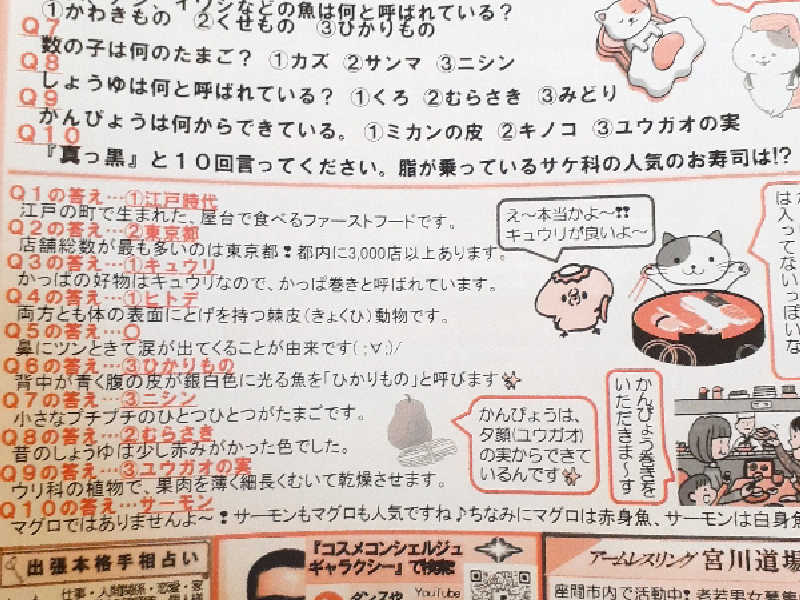 イワシなどの魚は何と呼ばれている?
①かわきもの ②くせもの ③ひかりもの
Q7
数の子は何のたまご? ①カズ ②サンマ ③ニシン
Q8
しょうゆは何と呼ばれている? ①くろ ②むらさき ③みどり
Q9
かんぴょうは何からできている。 ①ミカンの皮 ②キノコ ③ユウガオの実
Q10
『真っ黒』と10回言ってください。脂が乗っているサケ科の人気のお寿司は!?
Q1の答え…①江戸時代
江戸の町で生まれた、屋台で食べるファーストフードです。
Q2の答え…②東京都
店舗総数が最も多いのは東京都❢都内に3,000店以上あります。
Q3の答え…①キュウリ
かっぱの好物はキュウリなので、かっぱ巻きと呼ばれています。
Q4の答え…①ヒトデ
両方とも体の表面にとげを持つ棘皮(きょくひ)動物です。
Q5の答え…○
鼻にツンときて涙が出てくることが由来です( ;∀;)/
Q6の答え…③ひかりもの
背中が青く腹の皮が銀白色に光る魚を「ひかりもの」と呼びます
Q7の答え…③ニシン
小さなプチプチのひとつひとつがたまごです。
Q8の答え…②むらさき
昔のしょうゆは少し赤みがかった色でした。
Q9の答え…③ユウガオの実
ウリ科の植物で、果肉を薄く細長くむいて乾燥させます。
Q10の答え…サーモン
マグロではありませんよ~❢サーモンもマグロも人気ですね♪ちなみにマグロは赤身魚、サーモンは白身魚
え~本当かよ~❢❢
キュウリが良いよ~
は入ってないいっぱいな
かんぴょうは、
夕顔(ユウガオ)
の実からできて
いるんです
かんぴょう巻きを
いただきま~す
出張本格手相占い
仕事・人間関係・恋愛・家
『コスメコンシェルジュ
ギャラクシー』で検索
YouTube
アームレスリング 宮川道場
座間市内で活動中❢老若男女募集